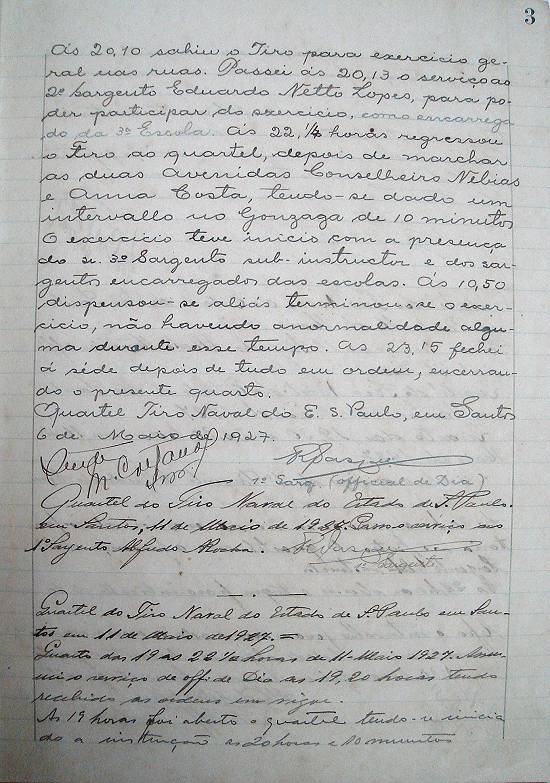 3
Ás 20,10 sahiu o Tiro para exercicio ge-
ral nas ruas. Passei ás 20,13 o serviço ao
2º Sargento Eduardo Netto Lopes, para po-
der participar do exercicio, como encarrega-
do da 3ª Escola. Ás 22,1/4 horas regressou
o Tiro ao quartel, depois de marchar
as duas Avenidas Conselheiro Nebias
e Anna Costa, tendo-se dado um
intervallo no Gonzaga de 10 minutos
O exercicio teve inicio com a presença
do sr. 3º Sargento sub-instructor e dos sar-
gentos encarregados das escolas. Ás 10,50
dispensou-se aliás terminou-se o exer-
cicio, não havendo anormalidade algu-
ma durante esse tempo. As 23,15 fechei
a séde depois de tudo em ordem, encerran-
do o presente quarto.
Quartel Tiro Naval do E. S. Paulo, em Santos
6 de Maio de 1927.
1º Sarg. (official de Dia)
Quartel do Tiro Naval do Estado de S. Paulo
em Santos, 11 de Maio de 1927. Passo o serviço ao
1º Sargento Alfredo Rocha.
1º Sargento
Quartel do Tiro Naval do Estado de S. Paulo em San-
tos em 11 de Maio de 1927.=
Quarto das 19 as 22 1/2 horas de 11-Maio 1927. Assu-
mi o serviço de off. de Dia as 19,20 horas tendo
recebido as ordens em vigor.
As 19 horas foi aberto o quartel tendo-se inicia
do a instrucção as 20 horas e 10 minutos